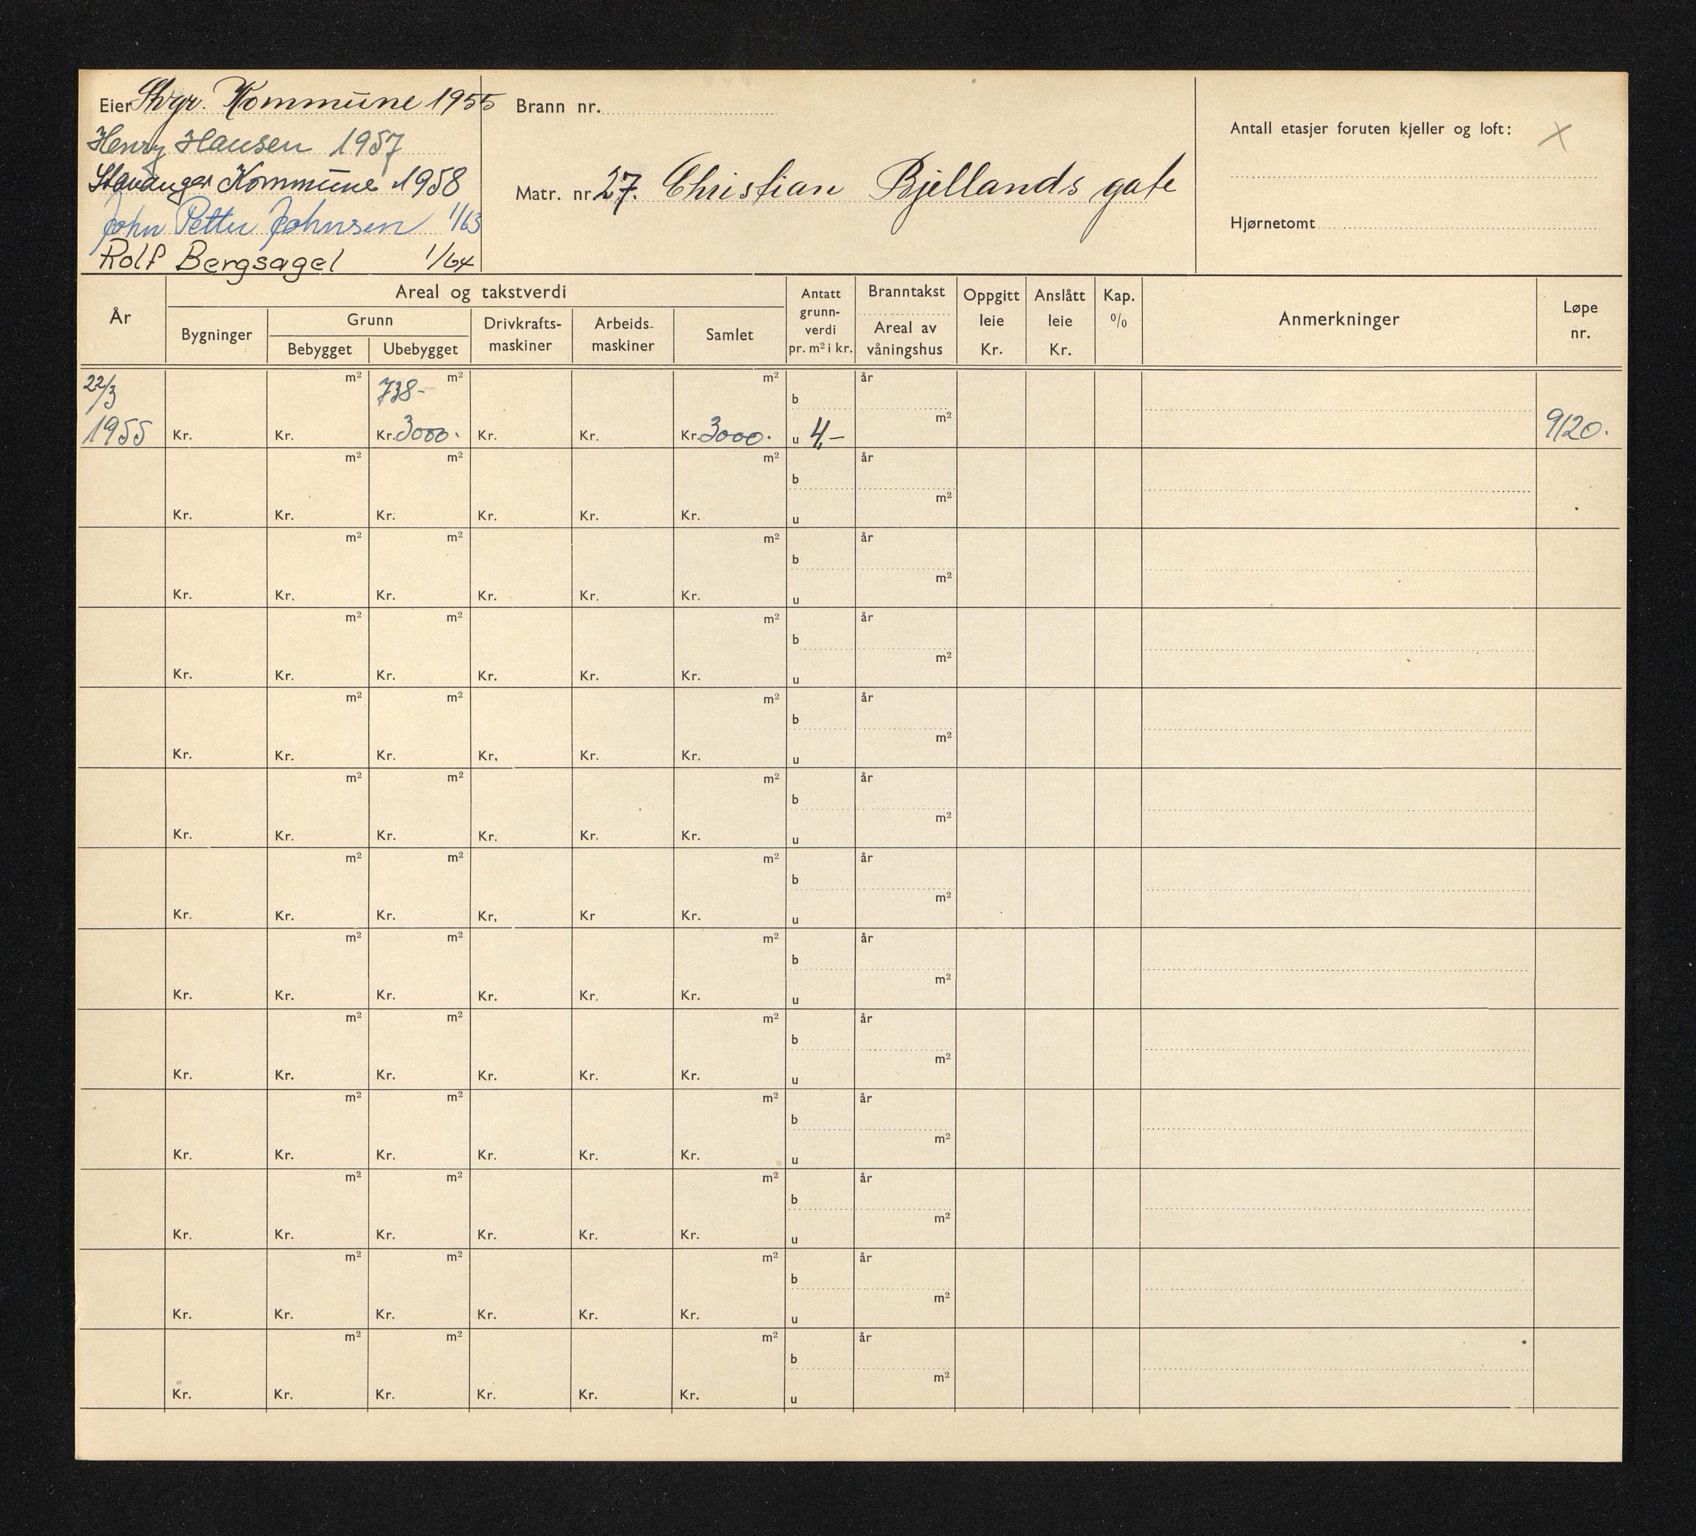 Eier Stvgr. Kommune 1955
Henry Hansen 1957
Stavanger Kommune 1958
John Petter Johnsen 1/63
Rolf Bergsagel 1/64
Brann nr.
Matr. nr. 27. Christian Bjellands gate
Antall etasjer foruten kjeller og loft: X
Hjørnetomt
År
Areal og takstverdi
Bygninger
Grunn
Bebygget Ubebygget
Drivkrafts-
maskiner
Arbeids-
maskiner
Samlet
Antatt
grunn-
verdi
pr. m² i kr.
Branntakst
Areal av
våningshus
Oppgitt
leie
Kr.
Anslått
leie
Kr.
Kap.
%
Anmerkninger
Løpe
nr.
22/3 m² 738- m² m² b år m²
1955 Kr. Kr. Kr. 3000. Kr. Kr. Kr. 3000. u 4,- 9120.
m² m² m² b år m²
Kr. Kr. Kr. Kr. Kr. Kr. u
m² m² m² b år m²
Kr. Kr. Kr. Kr. Kr. Kr. u
m² m² m² b år m²
Kr. Kr. Kr. Kr. Kr. Kr. u
m² m² m² b år m²
Kr. Kr. Kr. Kr. Kr. Kr. u
m² m² m² b år m²
Kr. Kr. Kr. Kr. Kr. Kr. u
m² m² m² b år m²
Kr. Kr. Kr. Kr, Kr Kr. u
m² m² m² b år m²
Kr. Kr. Kr. Kr. Kr. Kr. u
m² m² m² b år m²
Kr. Kr. Kr. Kr. Kr. Kr. u
m² m² m² b år m²
Kr. Kr. Kr. Kr. Kr. Kr. u
m² m² m² b år m²
Kr. Kr. Kr. Kr. Kr. Kr. u
m² m² m² b år m²
Kr. Kr. Kr. Kr. Kr. Kr. u
m² m² m² b år m²
Kr. Kr. Kr. Kr. Kr. Kr. u